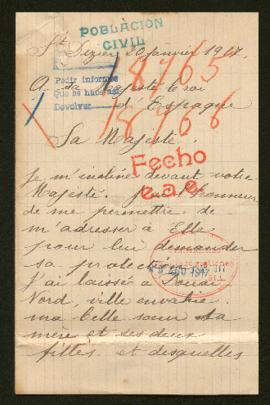 POBLACION
CIVIL
St Dizier, 20 janvier 1917
18765
Pedir informes
Que se haga así
Devolver
A sa Majesté le roi
d'Espagne
18766
Sa Majesté.
Fecho
e.a.e.
Je m'incline devant votre
Majesté. pour l'honneur
de me permettre de
m'adresser à Elle
pour lui demander
sa protection.
J'ai laissé à Douai
Nord, ville envahie
1917
ma belle sœur sa
mère et ses deux
filles et desquelles